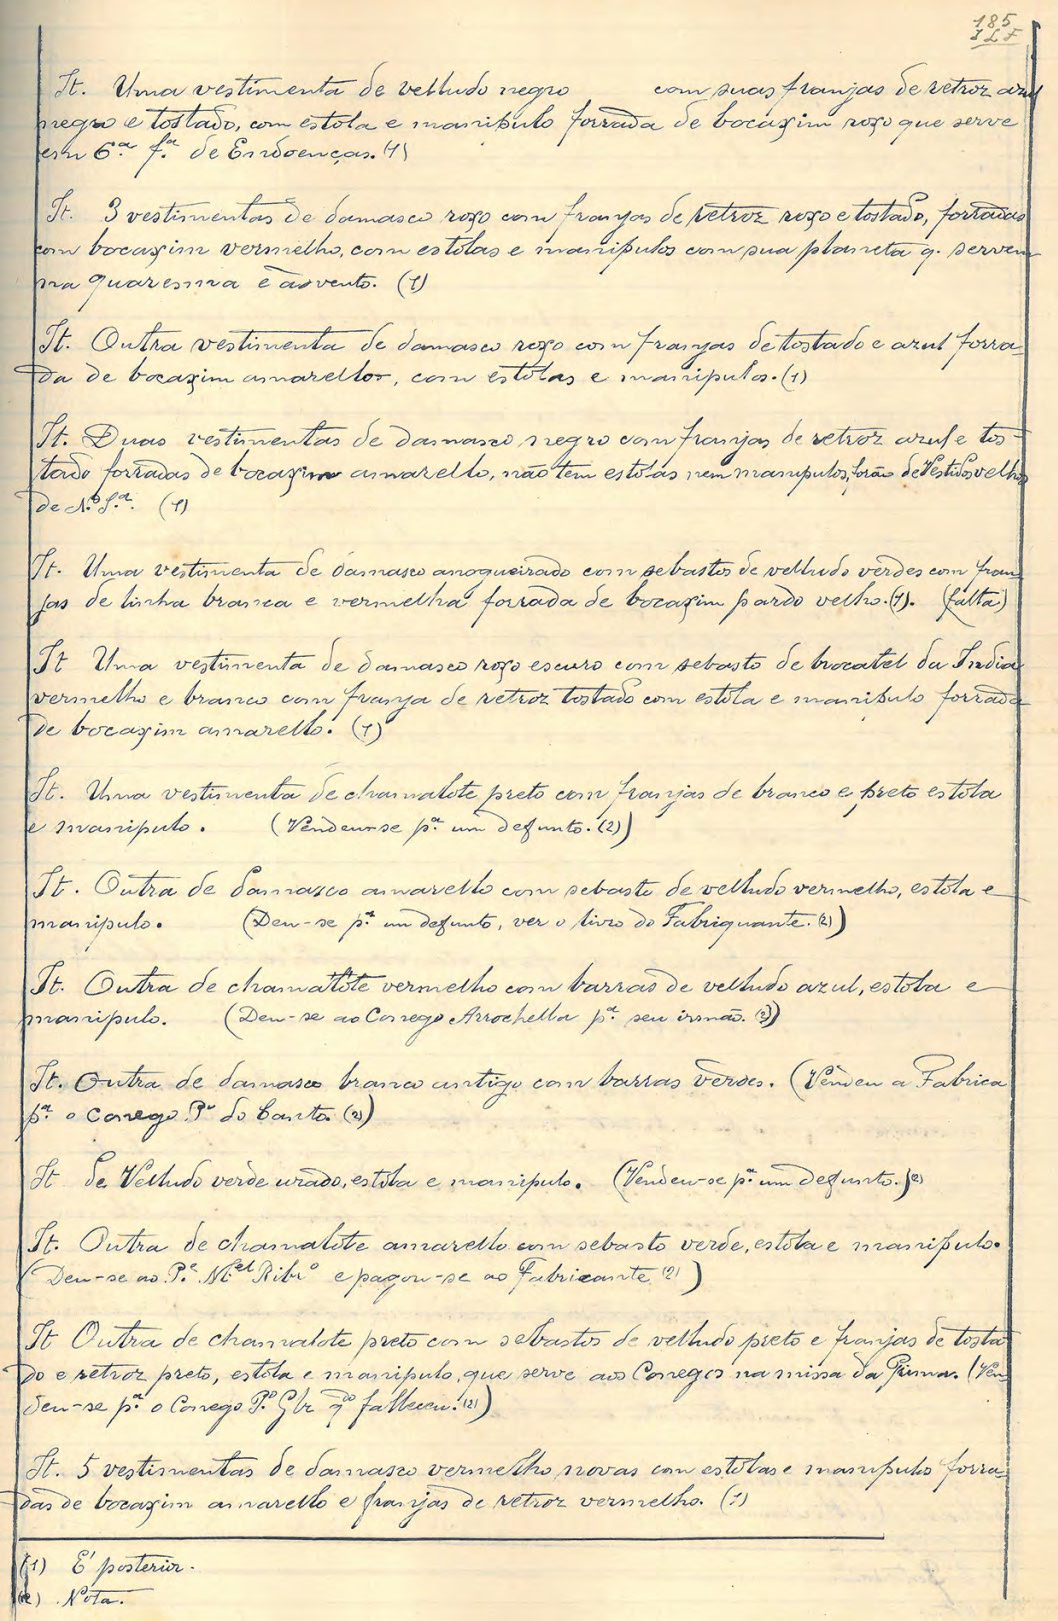 185
It. Uma vestimenta de velludo negro com suas franjas de retroz azul
negro e tostado, com estola e manipulo forrada de bocaxim roxo que serve
em 6.ª f.ª de Endoenças. (1)
It. 3 vestimentas de damasco roxo com franjas de retroz roxo e tostado, forradas
com bocaxim vermelho, com estolas e manipulos com sua planeta q. servem
na quaresma e advento. (1)
It. Outra vestimenta de damasco roxo com franjas de tostado e azul forra-
da de bocaxim amarello, com estolas e manipulos. (1)
It. Duas vestimentas de damasco negro com franjas de retroz azul e tos-
tado forradas de bocaxim amarello, não tem estolas nem manipulos, forão de Vestidos velhos
de N.ª S.ª. (1)
It. Uma vestimenta de damasco anogueirado com sebastos de velludo verdes com fran-
jas de linha branca e vermelha forrada de bocaxim pardo velho. (1). (falta)
It Uma vestimenta de damasco roxo escuro com sebasto de brocatel da India
vermelho e branco com franja de retroz tostado com estola e manipulo forrada
de bocaxim amarello. (1)
It. Uma vestimenta de chamalote preto com franjas de branco e preto estola
e manipulo. (Vendeu-se p.ª um defunto. (2))
It. Outra de Damasco amarello com sebasto de velludo vermelho, estola e
manipulo. (Deu-se p.ª um defunto, ver o livro do Fabriquante. (2))
It. Outra de chamalote vermelho com barras de velludo azul, estola e
manipulo. (Deu-se ao Conego Arrochella p.ª seu irmão. (2))
It. Outra de damasco branco antigo com barras verdes. (Vendeu a Fabrica
p.ª o Conego P.º do Canto. (2))
It de Velludo verde uzado, estola e manipulo. (Vendeu-se p.ª um defunto.) (2)
It. Outra de chamalote amarello com sebasto verde, estola e manipulo.
(Deu-se ao P.e M.el Ribr.º e pagou-se ao Fabricante (2))
It Outra de chamalote preto com sebastos de velludo preto e franjas de tosta-
do e retroz preto, estola e manipulo, que serve aos Conegos na missa da Prima. (Ven-
deu-se p.ª o Conego P.º Glz q.do falleceu. (2))
It. 5 vestimentas de damasco vermelho, novas com estolas e manipulos forra-
das de bocaxim amarello e franjas de retroz vermelho. (1)
(1) É posterior.
(2) Nota.